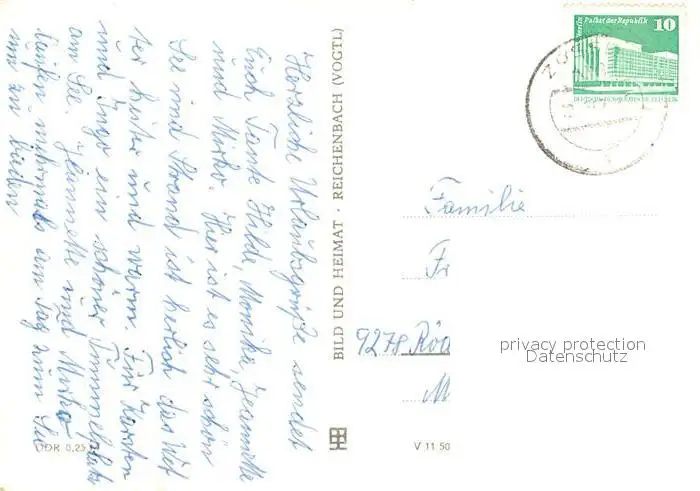 Herzliche Urlaubsgrüße sendet
Euch Tante Hilde, Monika, Jeannette
und Mirko. Hier ist es sehr schön
See und Strand ist herlich das Wet
ter heiter und warm. Für Karsten
und Ingo ein schöner Tummelplatz
am See. Jeannette und Mirko
laufen mehrmals am Tag zum See
um zu baden
BILD UND HEIMAT · REICHENBACH (VOGTL)
Berlin Palast der Republik 10
DEUTSCHE DEMOKRATISCHE REPUBLIK
Familie
Fr
9278 Röd
M
privacy protection
Datenschutz
DDR 0,25
V 11 50